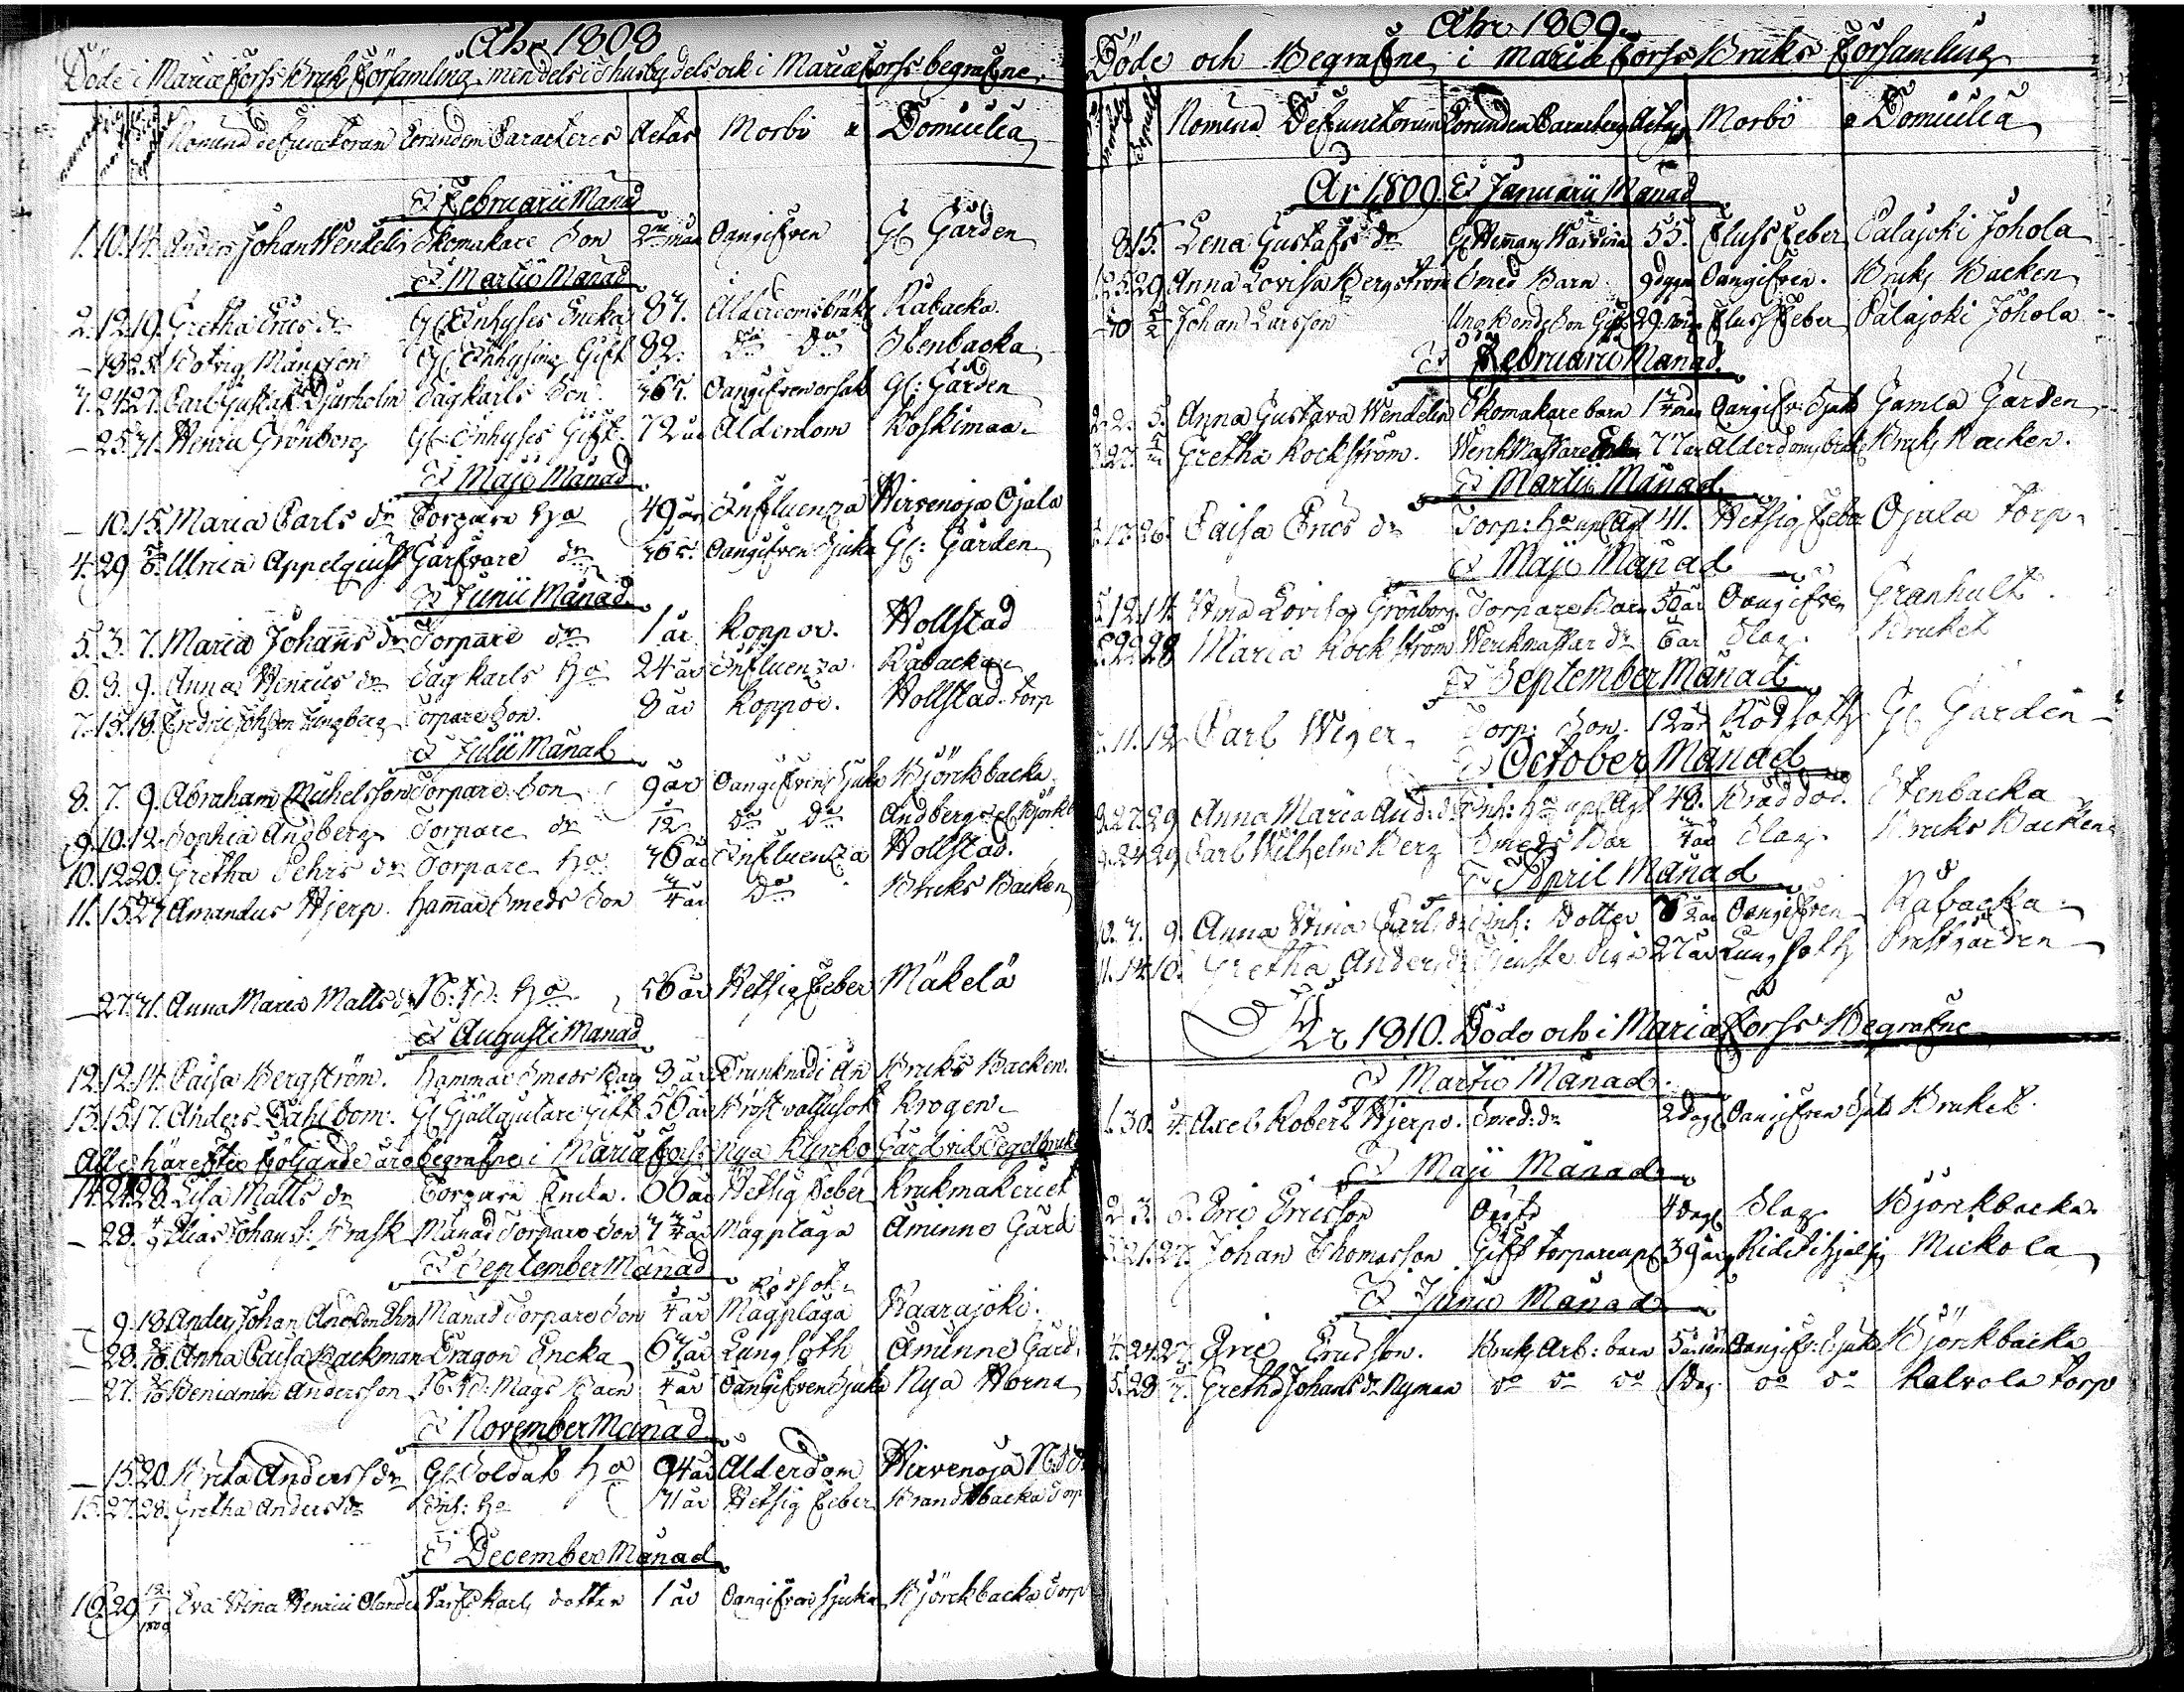 Åhr 1808
Döde i Mariæ Forss Bruks Församling, men dels i Thusby dels ock i Mariæ Forss begrafne.
Nomina defunctorum Eorundem Caracteres Aetas Morbi a Domicilia
Februarii Månad
1. 10. 14. Anders Johan Wendelin Skomakare Son 2 mån Oangifven Gl Gården
Martii Månad
2. 12. 19. Gretha Erics dr Gl Inhyses Encka 87. Ålderdomsbräk Råbacka
Månsson Gl Inhysing Gift 82. do do Stenbacka
24. 27. Carl Gustaf Djurholm Dagkarls Son Oangifven orsak Gl: Gården
25. Henric Grönberg Gl Inhyses Gift 72 år Ålderdom Koskimaa
Maji Månad
10. 15. Maria Carls dr Torpare Ha 49 år Influenza Hirvenoja Ojala
4. 29 Ulrica Appelquist Garfvare dr Oangifven Sjuka Gl: Gården
Junii Månad
5. 3. 7. Maria Johans dr Torpare dr 1 år Koppor. Hollstad
6. 3. 9. Anna Henrics dr Dagkarls Ha 24 år Influenza Råbacka
7. 13. 18. Fredric Johsson Ljungberg Torpare Son. 8 år Koppor. Hollstad Torp
Julii Månad
8. 7. 9. Abraham Michelsson Torpare Son 9 år Oangifven Sjuka Björckbacka
9. 10. 12. Sophia Andberg Torpare dr do do Andbergs
10. 12. 20. Gretha Pehrs dr Torpare Ha 36 år Influenza Hollstad.
11. 15. 24. Amandus Hjerp. Hammar Smeds Son 3/4 år Do Bruks Backen
27. 31. Anna Maria Matts dr Ha 56 år Hetsig Feber Mäkelä
Augusti Månad
12. 12. 14. Caisa Bergström. Hammar Smeds Barn 3 år Drunknad i Ån Bruks Backen.
13. 15. 17. Anders Dahlbom. Gl Gift 56 år Krogen
Alle härefter följande äro begrafne i Mariæ Forss nya Kyrko Gård vid Tegelbruket
14. 24. 28. Lisa Matts dr Torpare Encka. 66 år Hetsig Feber Krukmakeriet
28. Elias Johanss: Brask Månad Torpare Son Magplåga Åminne Gård
September Månad
Rödsot
9. 18. Anders Johan Månad Torpare Son Magplåga Haarajoki.
28. Anna Caisa Backman Dragon Encka 67 år Lungsoth Åminne Gård
27. Beniamin Andersson Mågs Barn Oangifven Sjuka Nya Horna
November Månad
15. 20. Brita Anders dr Gl Soldat Ha 94 år Ålderdom Hirvenoja
15. 27. 28. Gretha Anders dr Inh: Ha 41 år Hetsig Feber Brandtbacka Torp
December Månad
16. 29 1809 Eva Stina Henric Olander Karls dotter 1 år Oangifven sjuka Björckbacka Torp
Åhr 1809.
Döde och Begrafne i Mariæ Forss Bruks Församling
Nomina Defunctorum Eorundem Caracteres Aetas Morbi a Domicilia
År 1809. Januarii Månad
8. 15. Lena Gustafs dr Gl Värdinna 55. Fluss Feber Palajoki Johola
25. 29 Anna Lovisa Bergström Smed Barn 9 dygn Oangifven. Bruks Backen
30 Johan Larsson Ung Bonde Son Gift 29 Fluss Feber Palajoki Johola
Februarii Månad
2. 2. 5. Anna Gustava Wendelin Skomakare barn Oangifv: Sjuk Gamla Gården
3. 27. Gretha Rockström. Werk Mästare Encka 77 år Ålderdoms bräk Bruks Backen.
Martii Månad
17. 26. Caisa Erics dr Torp: Ha 41. Hetsig Feber Ojala Torp
Maji Månad
12. 14. Anna Lovisa Grönberg. Torpare Barn Oangifven Granhult.
22. 28 Maria Rockström Werkmästar dr 6 år Slag. Bruket
September Månad
11. 12 Carl Weger Torp: Son. 12 år Rödsoth Gl Gården
October Månad
27. 29 Anna Maria And: dr Inh: Ha 48. Bråddöd. Stenbacka
24. 29 Carl Wilhelm Berg Smeds Bar Slag. Bruks Backen
April Månad
7. 9. Anna Stina Carls dr Inh: Dotter Oangifven Råbacka
11. 14. 16. Gretha Anders dr Tjenste Piga 27 år Lungsoth Prästgården
År 1810. Döde och i Mariæ Forss Begrafne
Martii Månad
1. 30. Axel Robert Hjerpe. Smed: dr 2 Dagr Oangifven Sjuk Bruket.
Maji Månad
2. 3. 6. Eric Ericsson 4 Dagr Slag. Björckbacka
21. 27. Johan Thomasson Gift Torpare 39 år Ridit ihjel sig Mickola
Junii Månad
4. 24. 27. Eric Ericsson. Bruks Arb: barn Oangifv: Sjuk Björckbacka
5. 28 Gretha Johans dr Nyman do do do 1 Dag. do do Kalvola Torp